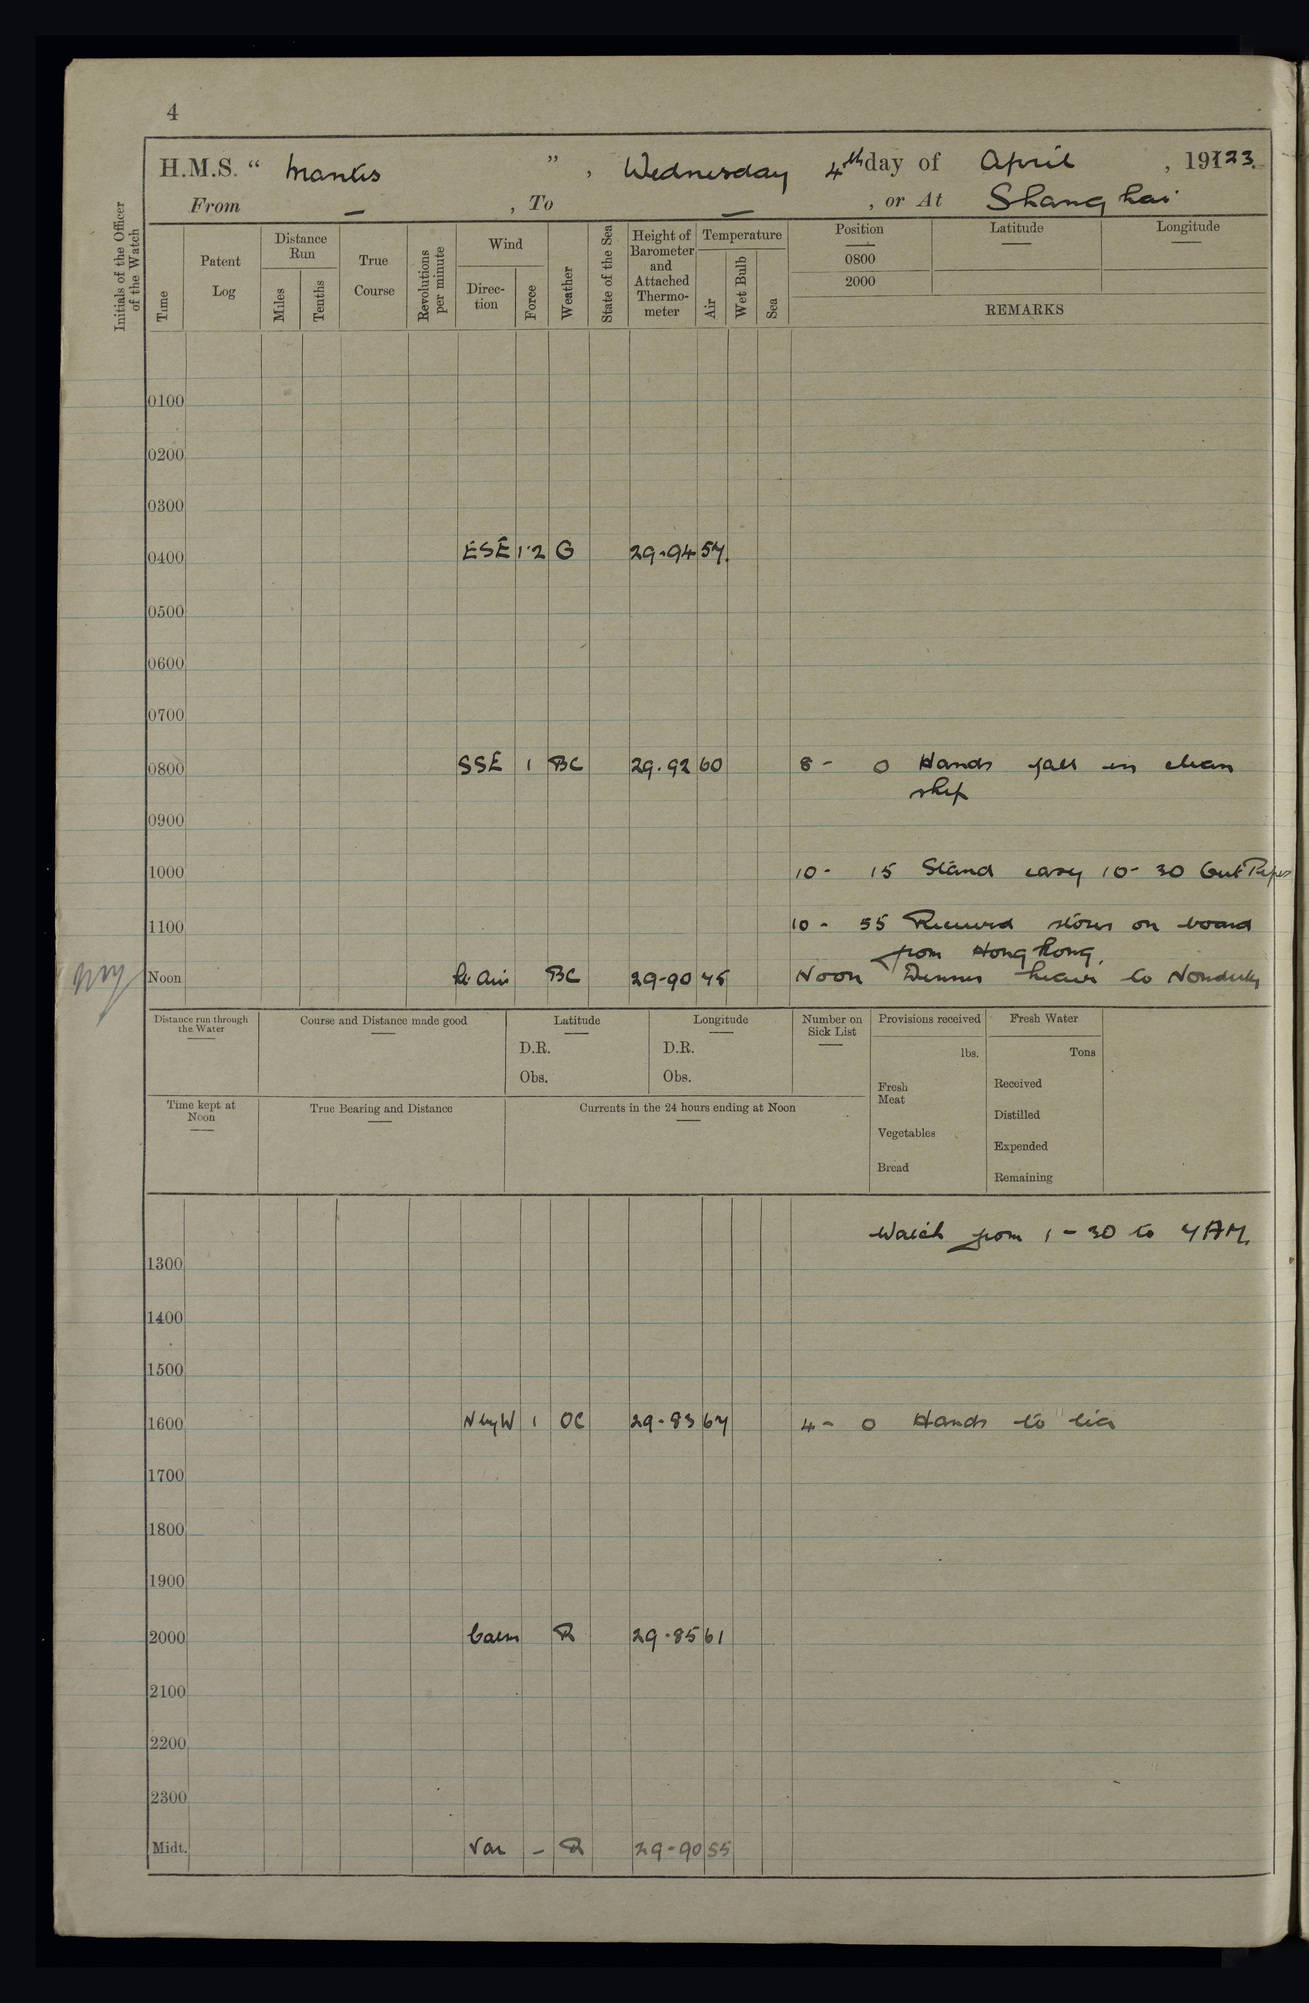 4
H.M.S. “ Mantis ”, Wednesday 4th day of April, 19123.
From — , To — , or At Shanghai
Initials of the Officer of the Watch
Time
Patent Log
Distance Run
Miles
Tenths
True Course
Revolutions per minute
Wind
Direc-tion
Force
Weather
State of the Sea
Height of Barometer and Attached Thermo-meter
Temperature
Air
Wet Bulb
Sea
Position
0800
2000
Latitude
Longitude
REMARKS
0100
0200
0300
0400 ESE 1·2 G 29·94 57.
0500
0600
0700
0800 SSE 1 BC 29·92 60 8 - 0 Hands fall in clean
ship
0900
1000 10 - 15 Stand easy 10 - 30 Out Pipes
1100 10 - 55 Received stores on board
from Hong Kong.
Noon Lt. Airs BC 29-90 75 Noon Dinner leave to Nonduty
Distance run through the Water
Course and Distance made good
Latitude
D.R.
Obs.
Longitude
D.R.
Obs.
Number on Sick List
Provisions received
lbs.
Fresh Meat
Vegetables
Bread
Fresh Water
Tons
Received
Distilled
Expended
Remaining
Time kept at Noon
True Bearing and Distance
Currents in the 24 hours ending at Noon
Watch from 1 - 30 to 7 AM.
1300
1400
1500
1600 N by W 1 OC 29-83 67 4 - 0 Hands to tea
1700
1800
1900
2000 Calm R 29·85 61
2100
2200
2300
Midt. Var - R 29-90 55